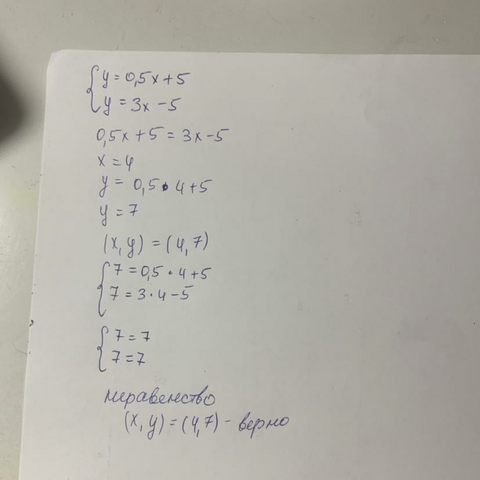 y = 0,5x + 5
y = 3x - 5
0,5x + 5 = 3x - 5
x = 4
y = 0,5 • 4 + 5
y = 7
(x, y) = (4, 7)
7 = 0,5 • 4 + 5
7 = 3 • 4 - 5
7 = 7
7 = 7
неравенство
(x, y) = (4, 7) - верно